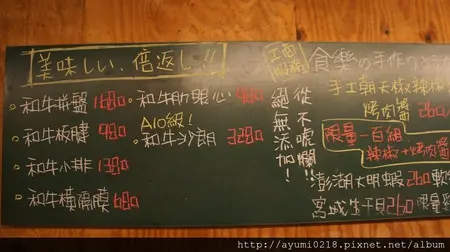 美味しい、倍返し!!
和牛拼盤 1680
和牛板腱 980
和牛小排 1380
和牛橫隔膜 680
和牛肋眼心 980
A10級!
和牛沙朗 3280
從不唬爛!!
絕無添加!
食樂の手作り
手工朝天椒辣椒
烤肉醬 260
限量一百組
辣椒+烤肉醬
澎湖大明蝦 260
宮城生干貝 260 限量
http://ayumi0218.pixnet.net/album